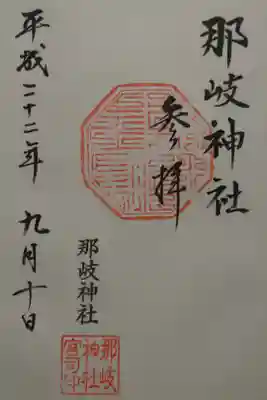 那岐神社
参拝
平成二十二年 九月十日
那岐神社
那岐
神社
宮司印